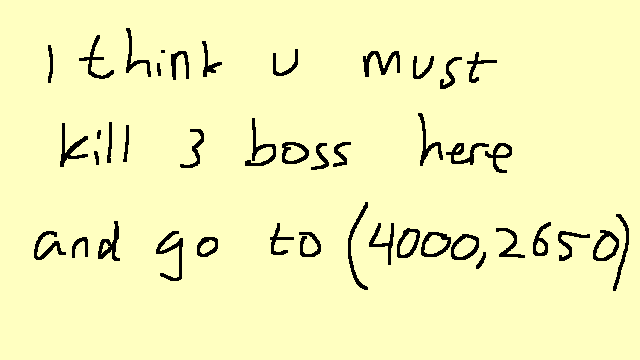 I think u must
kill 3 boss here
and go to (4000,2650)